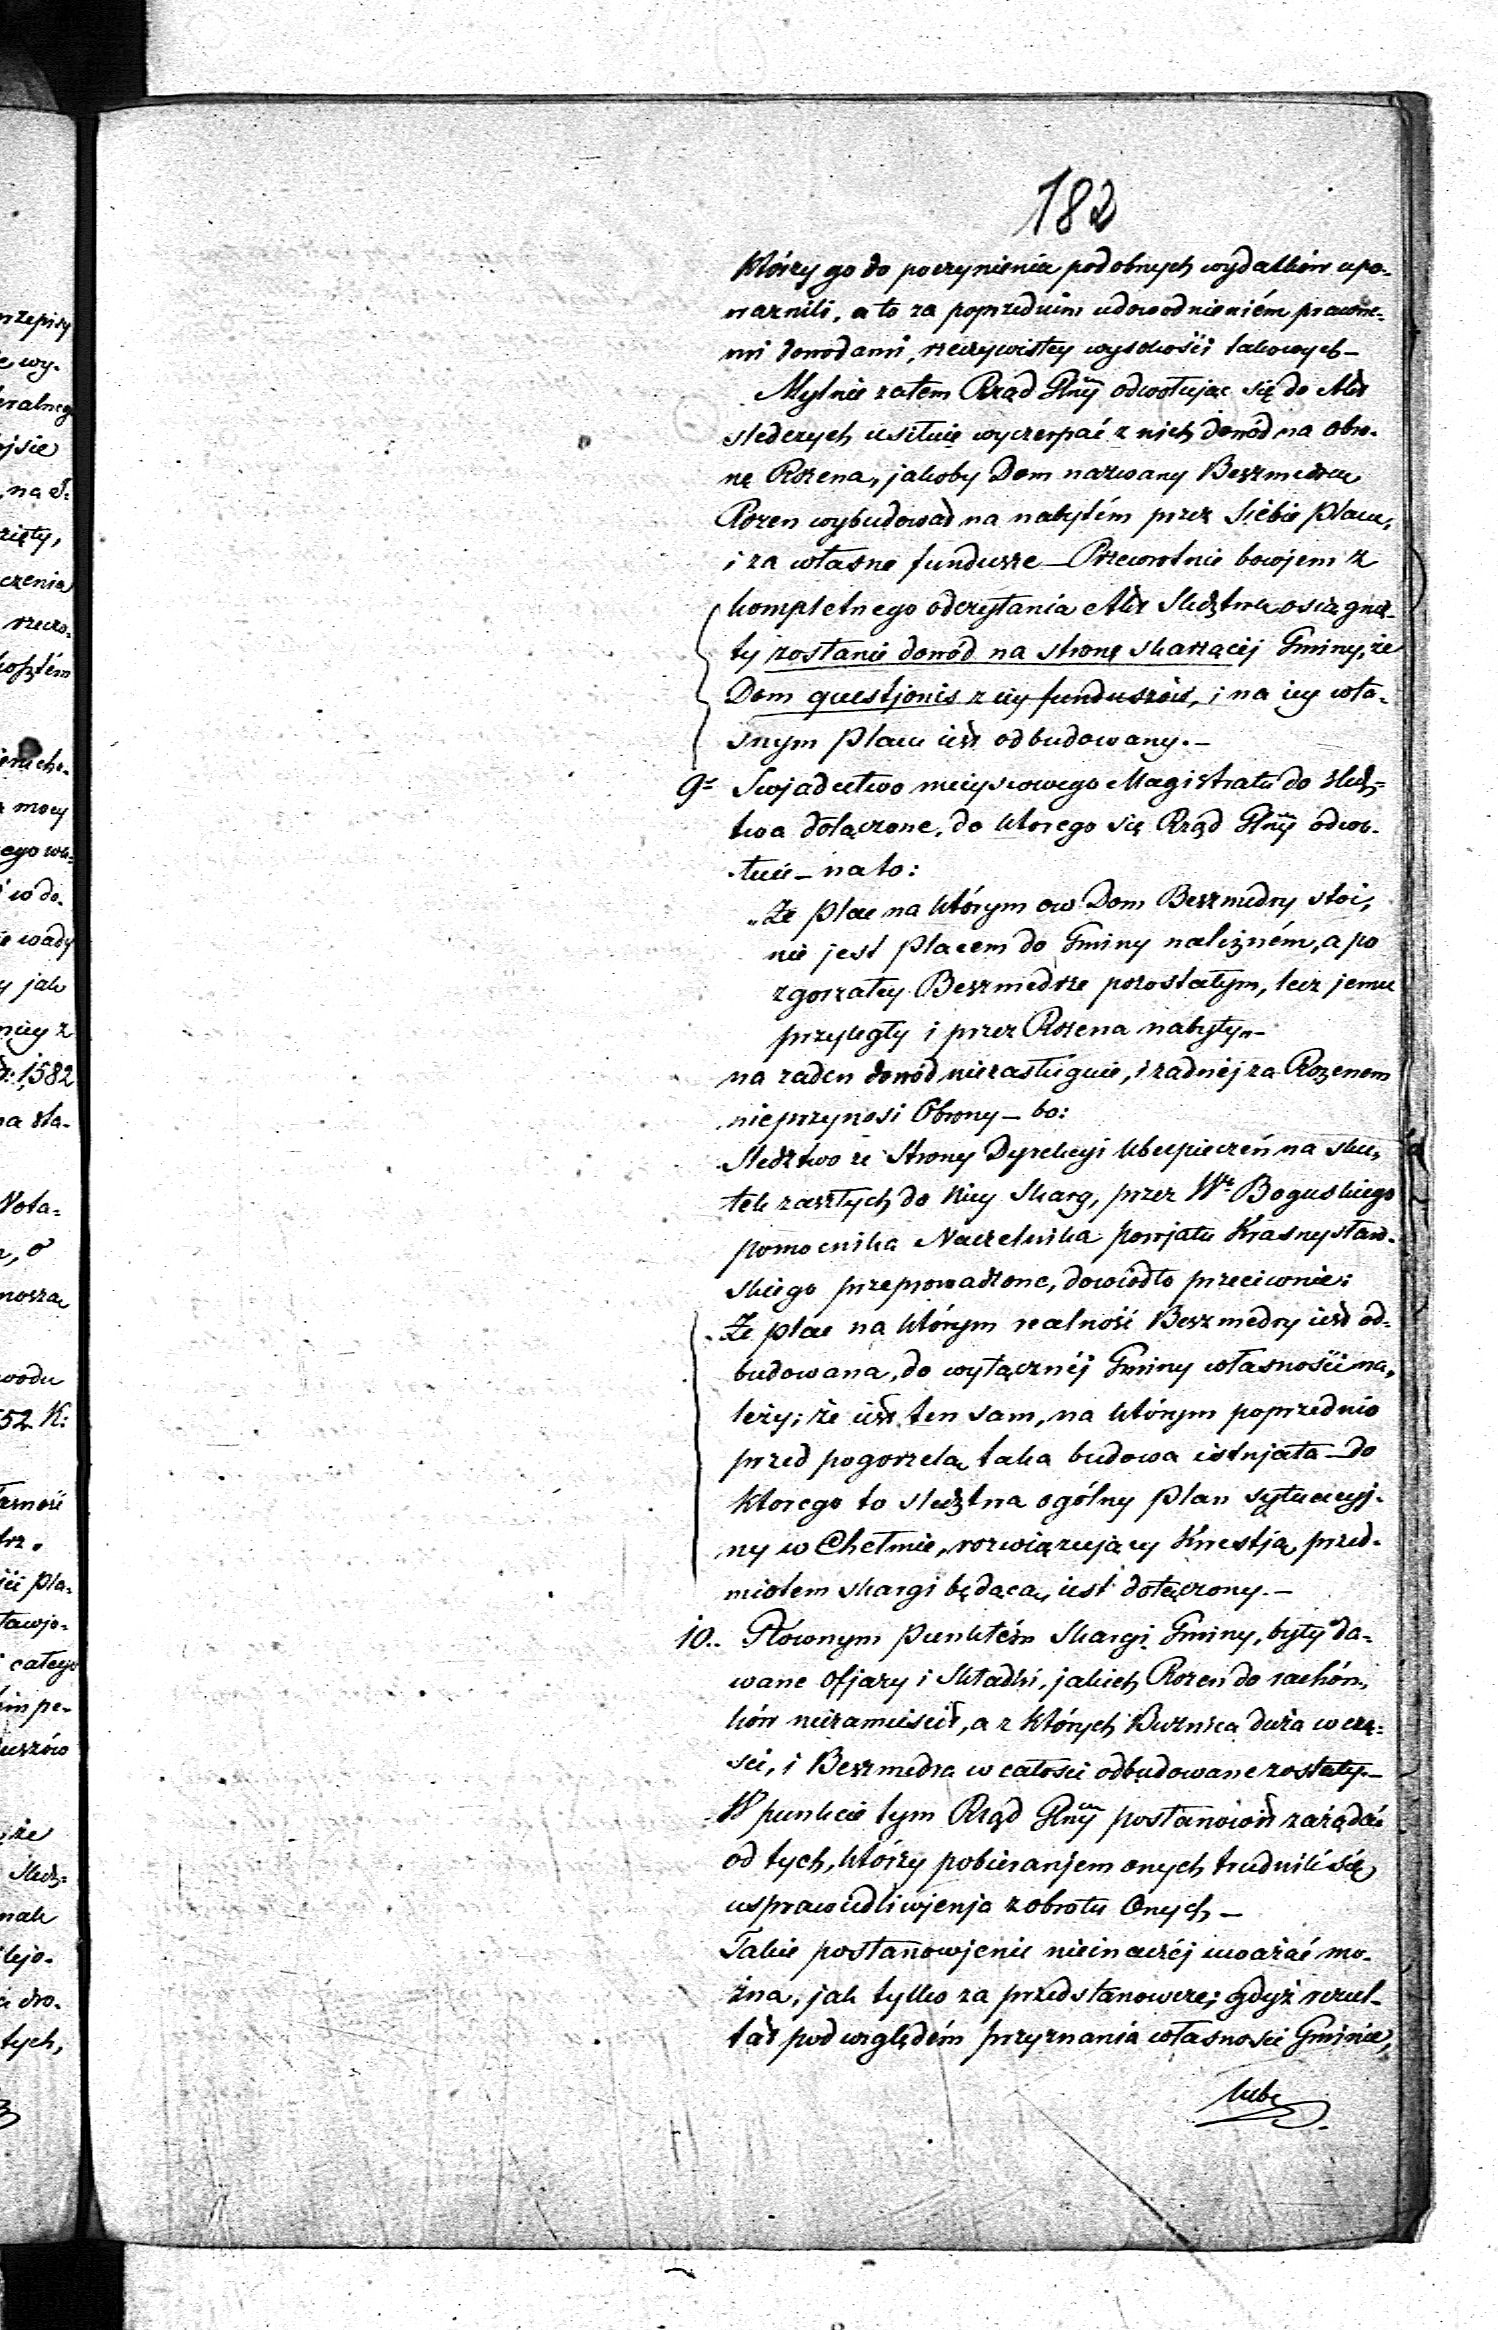 182
którzy go do poczynienia podobnych wydatków upo-
ważnili, a to za poprzednim udowodnieniém prawne-
mi dowodami, rzeczywistey wysokości takowych –
Mylnie zatem Rząd Glny odwołując się do Akt
sledczych usiłuie wyczerpać z nich dowód na obro-
nę Rozena, jakoby Dom nazwany Beszmedrem
Rozen wybudował na nabytém przez siebie placu,
i za własne fundusze – Przewrotnie bowjem z
kompletnego odczytania Akt Sledztwa osiągnię-
ty zostanie dowód na stronę skarzącéj Gminy, że
Dom questjonis z iey funduszów, i na iey wła-
snym placu iest odbudowany. –
9= Swjadectwo mieyscowego Magistratu do sledz-
twa dołączone, do ktorego się Rząd Glny odwo-
łuie – na to:
„Że plac na którym ow Dom Beszmedry stoi,
nie jest placem do Gminy należném, a po
zgorzałey Beszmedrze pozostałym, lecz jemu
przyległy i przez Rozena nabyty„ –
na żaden dowód niezasługuie, i żadnéj za Rozenem
nieprzynosi Obrony – bo:
Sledztwo ze Strony Dyrekcyi Ubezpieczeń na sku-
tek zaszłych do Niey Skarg, przez Wo Boguskiego
pomocnika Naczelnika powjatu Krasnystaw-
skiego przeprowadzone, dowiodło przeciwnie:
„Że plac na którym realność Beszmedry iest od-
budowana, do wyłącznéj Gminy własności na-
leży; że iest ten sam, na którym poprzednio
przed pogorzelą taka budowa istnjała – do
ktorego to sledztwa ogólny plan sytuacyj-
ny w Chełmie, rozwiązujący Kwestją przed-
miotem skargi będącą, iest dołączony. –
10.. Głównym punktém Skargi Gminy, były da-
wane Ofjary i Składki, jakich Rozen do rachón-
ków niezamieścił, a z których Bużnica duża w czę-
ści, i Beszmedra w całości odbudowane zostały. –
W punkcie tym Rząd Glny postanowił zażądać
od tych, którzy pobieranjem onych trudnili się,
usprawiedliwjenja z obrotu Onych –
Takie postanowjenie nieinaczéj uważać mo-
żna, jak tylko za przedstanowcze; gdyż rezul-
tat pod względém przyznania własnosci Gminie,
lubo